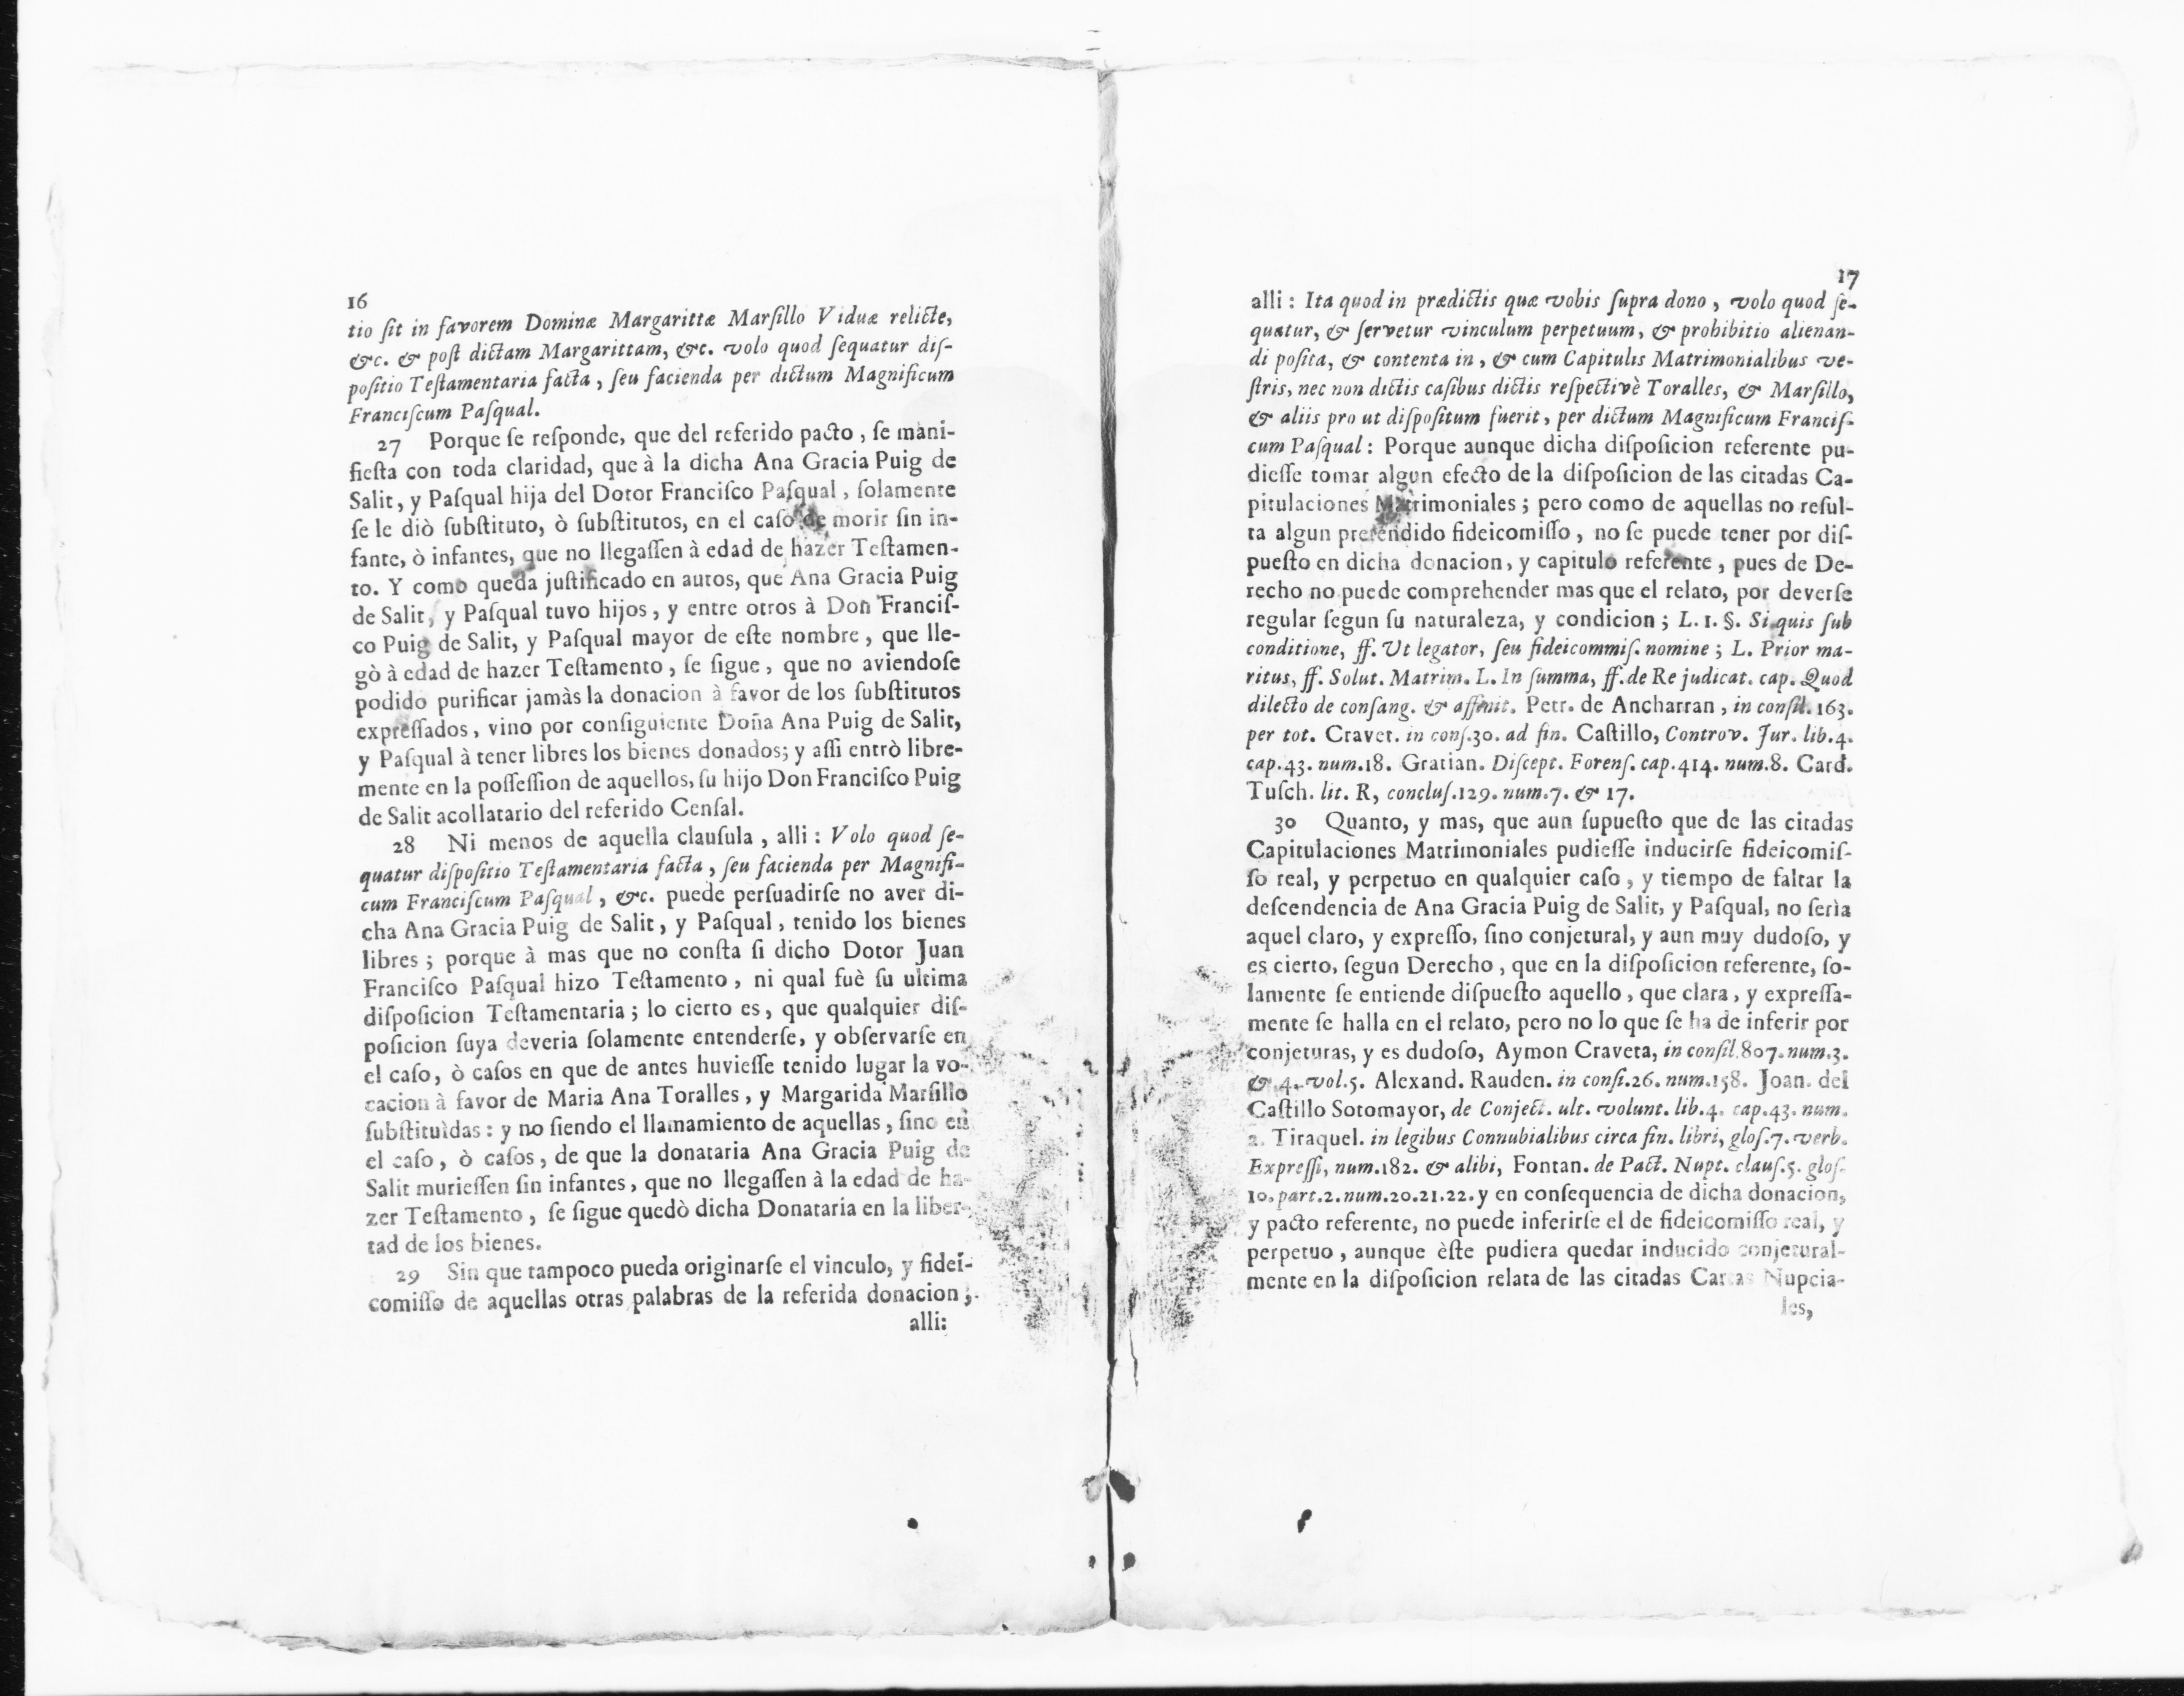 16
tio ſit in favorem Dominæ Margarittæ Marſillo Viduæ relicte,
&c. & poſt dictam Margarittam, &c. volo quod ſequatur diſ-
poſitio Teſtamentaria facta, ſeu facienda per dictum Magnificum
Franciſcum Paſqual.
27 Porque ſe reſponde, que del referido pacto, ſe mani-
fieſta con toda claridad, que à la dicha Ana Gracia Puig de
Salit, y Paſqual hija del Dotor Franciſco Paſqual, ſolamente
ſe le diò ſubſtituto, ò ſubſtitutos, en el caſo de morir ſin in-
fante, ò infantes, que no llegaſſen à edad de hazer Teſtamen-
to. Y como queda juſtificado en autos, que Ana Gracia Puig
de Salit, y Paſqual tuvo hijos, y entre otros à Don Franciſ-
co Puig de Salit, y Paſqual mayor de eſte nombre, que lle-
gò à edad de hazer Teſtamento, ſe ſigue, que no aviendoſe
podido purificar jamàs la donacion à favor de los ſubſtitutos
expreſſados, vino por conſiguiente Doña Ana Puig de Salit,
y Paſqual à tener libres los bienes donados; y aſſi entrò libre-
mente en la poſſeſſion de aquellos, ſu hijo Don Franciſco Puig
de Salit acollatario del referido Cenſal.
28 Ni menos de aquella clauſula, alli: Volo quod ſe-
quatur diſpoſitio Teſtamentaria facta, ſeu facienda per Magnifi-
cum Franciſcum Paſqual, &c. puede perſuadirſe no aver di-
cha Ana Gracia Puig de Salit, y Paſqual, tenido los bienes
libres; porque à mas que no conſta ſi dicho Dotor Juan
Franciſco Paſqual hizo Teſtamento, ni qual fuè ſu ultima
diſpoſicion Teſtamentaria; lo cierto es, que qualquier diſ-
poſicion ſuya deveria ſolamente entenderſe, y obſervarſe en
el caſo, ò caſos en que de antes huvieſſe tenido lugar la vo-
cacion à favor de Maria Ana Toralles, y Margarida Marſillo
ſubſtituìdas: y no ſiendo el llamamiento de aquellas, ſino en
el caſo, ò caſos, de que la donataria Ana Gracia Puig de
Salit murieſſen ſin infantes, que no llegaſſen à la edad de ha-
zer Teſtamento, ſe ſigue quedò dicha Donataria en la liber-
tad de los bienes.
29 Sin que tampoco pueda originarſe el vinculo, y fidei-
comiſſo de aquellas otras palabras de la referida donacion,
alli:
17
alli: Ita quod in prædictis quæ vobis ſupra dono, volo quod ſe-
quatur, & ſervetur vinculum perpetuum, & prohibitio alienan-
di poſita, & contenta in, & cum Capitulis Matrimonialibus ve-
ſtris, nec non dictis caſibus dictis reſpectivè Toralles, & Marſillo,
& aliis pro ut diſpoſitum fuerit, per dictum Magnificum Franciſ-
cum Paſqual: Porque aunque dicha diſpoſicion referente pu-
dieſſe tomar algun efecto de la diſpoſicion de las citadas Ca-
pitulaciones Matrimoniales; pero como de aquellas no reſul-
ta algun pretendido fideicomiſſo, no ſe puede tener por diſ-
pueſto en dicha donacion, y capitulo referente, pues de De-
recho no puede comprehender mas que el relato, por deverſe
regular ſegun ſu naturaleza, y condicion; L. 1. §. Si quis ſub
conditione, ff. Ut legator, ſeu fideicommiſ. nomine; L. Prior ma-
ritus, ff. Solut. Matrim. L. In ſumma, ff. de Re judicat. cap. Quod
dilecto de conſang. & affinit. Petr. de Ancharran, in conſil. 163.
per tot. Cravet. in conſ. 30. ad fin. Caſtillo, Controv. Jur. lib. 4.
cap. 43. num. 18. Gratian. Diſcept. Forenſ. cap. 414. num. 8. Card.
Tuſch. lit. R, concluſ. 129. num. 7. & 17.
30 Quanto, y mas, que aun ſupueſto que de las citadas
Capitulaciones Matrimoniales pudieſſe inducirſe fideicomiſ-
ſo real, y perpetuo en qualquier caſo, y tiempo de faltar la
deſcendencia de Ana Gracia Puig de Salit, y Paſqual, no ſerìa
aquel claro, y expreſſo, ſino conjetural, y aun muy dudoſo, y
es cierto, ſegun Derecho, que en la diſpoſicion referente, ſo-
lamente ſe entiende diſpueſto aquello, que clara, y expreſſa-
mente ſe halla en el relato, pero no lo que ſe ha de inferir por
conjeturas, y es dudoſo, Aymon Craveta, in conſil. 807. num. 3.
& 4. vol. 5. Alexand. Rauden. in conſi. 26. num. 158. Joan. del
Caſtillo Sotomayor, de Conject. ult. volunt. lib. 4. cap. 43. num.
2. Tiraquel. in legibus Connubialibus circa fin. libri, gloſ. 7. verb.
Expreſſi, num. 182. & alibi, Fontan. de Pact. Nupt. clauſ. 5. gloſ.
10. part. 2. num. 20. 21. 22. y en conſequencia de dicha donacion,
y pacto referente, no puede inferirſe el de fideicomiſſo real, y
perpetuo, aunque èſte pudiera quedar inducido conjetural-
mente en la diſpoſicion relata de las citadas Cartas Nupcia-
les,